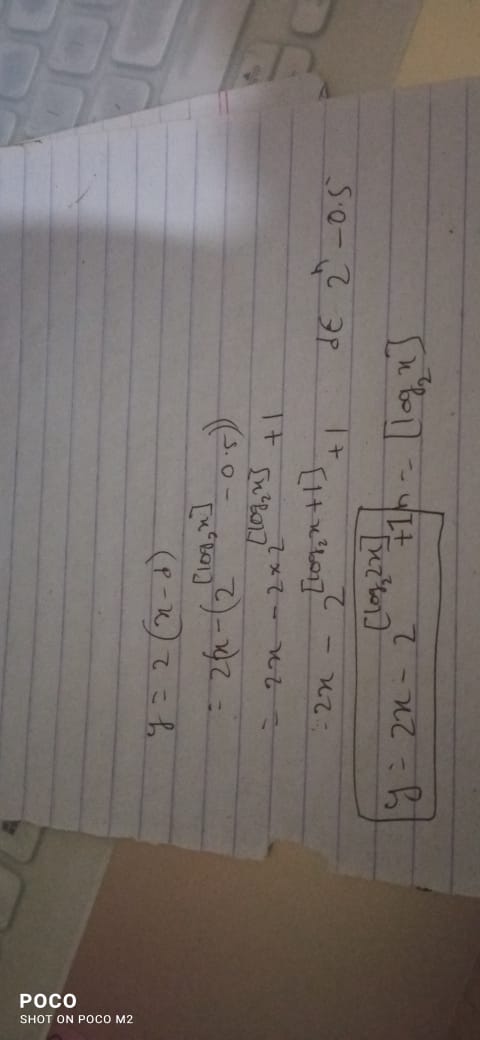 y = 2(x-d)
= 2(x-(2^[log₂x] - 0.5))
= 2x - 2×2^[log₂x] + 1
= 2x - 2^[log₂x+1] + 1 d∈ 2ⁿ - 0.5
y = 2x - 2^[log₂2x] + 1 n = [log₂x]
POCO
SHOT ON POCO M2